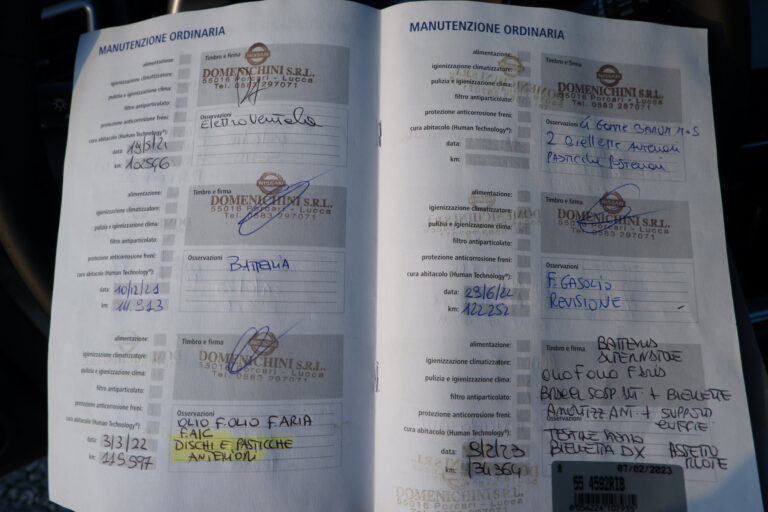 MANUTENZIONE ORDINARIA
alimentazione:
igienizzazione climatizzatore:
pulizia e igienizzazione clima:
filtro antiparticolato:
protezione anticorrosione freni:
cura abitacolo (Human Technology®):
data: 19/5/21
km: 102546
Timbro e firma
NISSAN
DOMENICHINI S.R.L.
55016 Porcari - Lucca
Tel. 0583 297071
Osservazioni
Elettroventola
alimentazione:
igienizzazione climatizzatore:
pulizia e igienizzazione clima:
filtro antiparticolato:
protezione anticorrosione freni:
cura abitacolo (Human Technology®):
data: 10/12/21
km: 111.913
Timbro e firma
NISSAN
DOMENICHINI S.R.L.
55016 Porcari - Lucca
Tel. 0583 297071
Osservazioni
BATTERIA
alimentazione:
igienizzazione climatizzatore:
pulizia e igienizzazione clima:
filtro antiparticolato:
protezione anticorrosione freni:
cura abitacolo (Human Technology®):
data: 3/3/22
km: 115597
Timbro e firma
DOMENICHINI S.R.L.
55016 Porcari - Lucca
Tel. 0583 297071
Osservazioni
OLIO F.OLIO F.ARIA
DISCHI E PASTICCHE
ANTERIORI
MANUTENZIONE ORDINARIA
alimentazione:
igienizzazione climatizzatore:
pulizia e igienizzazione clima:
filtro antiparticolato:
protezione anticorrosione freni:
cura abitacolo (Human Technology®):
data:
km:
Timbro e firma
DOMENICHINI S.R.L.
55016 Porcari - Lucca
Tel. 0583 297071
Osservazioni
4 GOMME
2 ANTERIORI
PASTICCHE POSTERIORI
alimentazione:
igienizzazione climatizzatore:
pulizia e igienizzazione clima:
filtro antiparticolato:
protezione anticorrosione freni:
cura abitacolo (Human Technology®):
data: 29/6/22
km: 122252
Timbro e firma
DOMENICHINI S.R.L.
55016 Porcari - Lucca
Tel. 0583 297071
Osservazioni
F. GASOLIO
REVISIONE
alimentazione:
igienizzazione climatizzatore:
pulizia e igienizzazione clima:
filtro antiparticolato:
protezione anticorrosione freni:
cura abitacolo (Human Technology®):
data: 9/2/23
km: 134364
Timbro e firma
OLIO F OLIO F ARIA
SOSP. ANT + BIELLETTE
AMMORTIZZ ANT. + SUPPORTI
CUFFIE
Osservazioni
BIELLETTA DX ASSETTO
RUOTE
07/02/2023
55 4592RIB